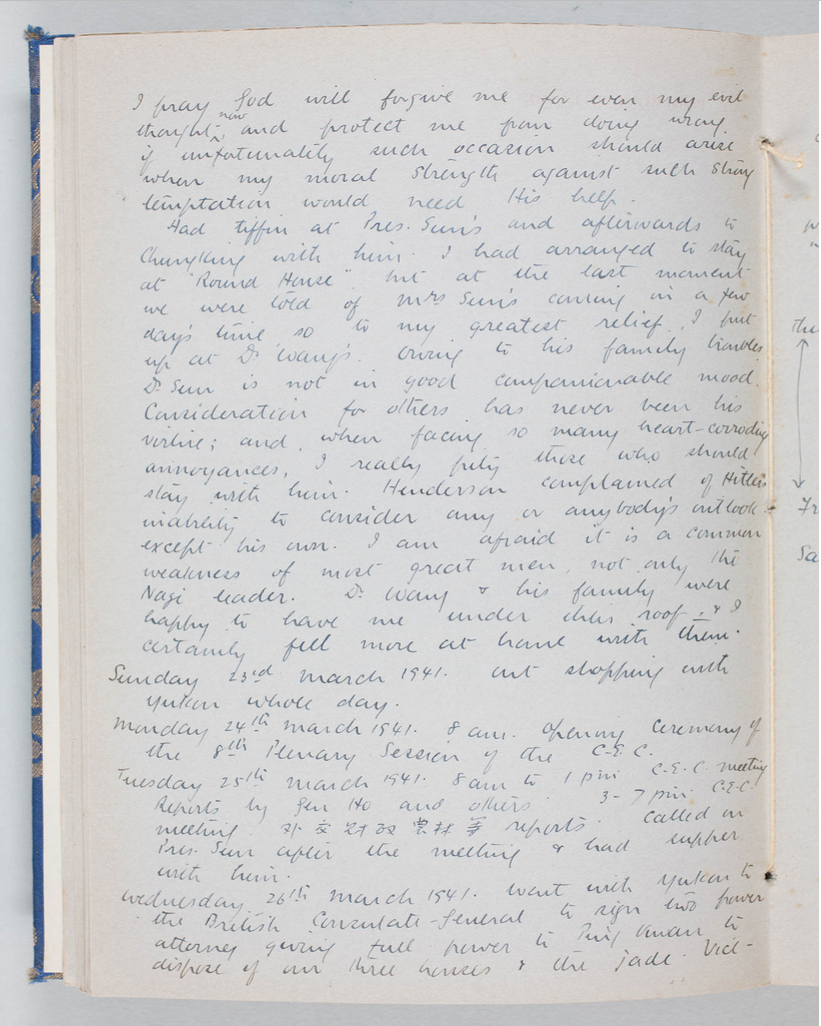 I pray God will forgive me for even my evil
thought now and protect me from doing wrong
if unfortunatily such occasion should arise
when my moral strength against such strong
temptation would need His help.
Had tiffin at Pres. Sun's and afterwards to
Chungking with him. I had arranged to stay
at "Round House" but at the last moment
we were told of Mrs Sun's coming in a few
day's time so to my greatest relief, I put
up at Dr Wang's. Owing to his family troubles
Dr. Sun is not in good companionable mood.
Consideration for others has never been his
virtue; and, when facing so many heart-corroding
annoyances, I really pity those who should
stay with him. Henderson complained of Hitler's
inability to consider any or anybody's outlook
except his own. I am afraid it is a common
weakness of most great men, not only the
Nazi leader. Dr. Wang & his family were
happy to have me under their roof, & I
certainly fell more at home with them.
Sunday 23rd March 1941. out shopping with
Yukon whole day.
Monday 24th March 1941. 8 am. Opening Ceremony of
the 8th Plenary Session of the C.E.C.
Tuesday 25th March 1941. 8 am to 1 pm C.E.C. meeting
Reports by Gen Ho and others. 3-7 pm. C.E.C.
meeting. 外交財政農林等 reports. Called on
Pres. Sun after the meeting & had supper
with him.
Wednesday 26th March 1941. Went with Yukon to
the British Consulate-General to sign two power
attorney giving full power to to
dispose of our three houses & the jade. Vice-
the
Fr
Sa